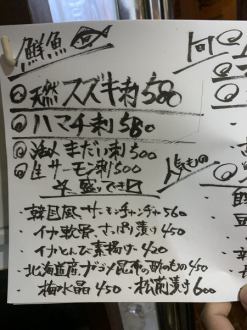 鮮魚
◎天然スズキ刺 580
◎ハマチ刺 580
◎油〆まだい刺 500
◎生サーモン刺 500
盛りでき〼
人気もの
・韓国風サーモンチャンヂャ 560
・イカ軟骨さっぱり漬け 450
・イカとんび素揚げ 420
・北海道産ガゴメ昆布の酢のもの 450
・梅水晶 450 ・松前漬け 600